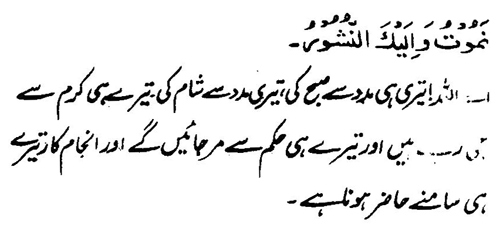 نَمُوْتُ وَاِلَيْكَ النُّشُوْرُ۔
اللہ! تیری ہی مدد سے صبح کی، تیری مدد سے شام کی، تیرے ہی کرم سے
ہیں اور تیرے ہی حکم سے مرجائیں گے اور انجام کار تیرے
ہی سامنے حاضر ہونا ہے۔